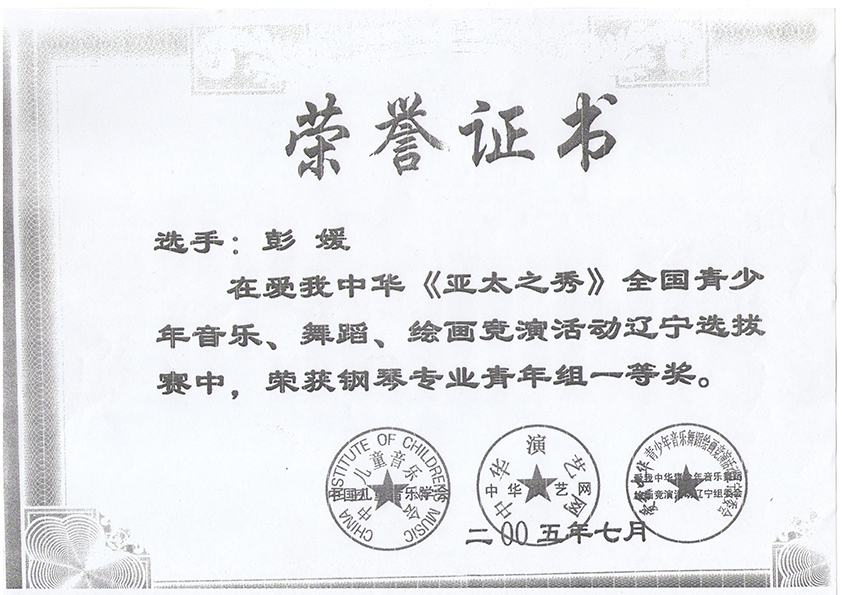 荣誉证书
选手：彭 媛
在爱我中华《亚太之秀》全国青少
年音乐、舞蹈、绘画竞演活动辽宁选拔
赛中，荣获钢琴专业青年组一等奖。
CHINA INSTITUTE OF CHILDREN'S MUSIC
中国儿童音乐学会
中华演艺网
中华演艺网
爱我中华青少年音乐舞蹈
绘画竞演活动辽宁组委会
二00五年七月